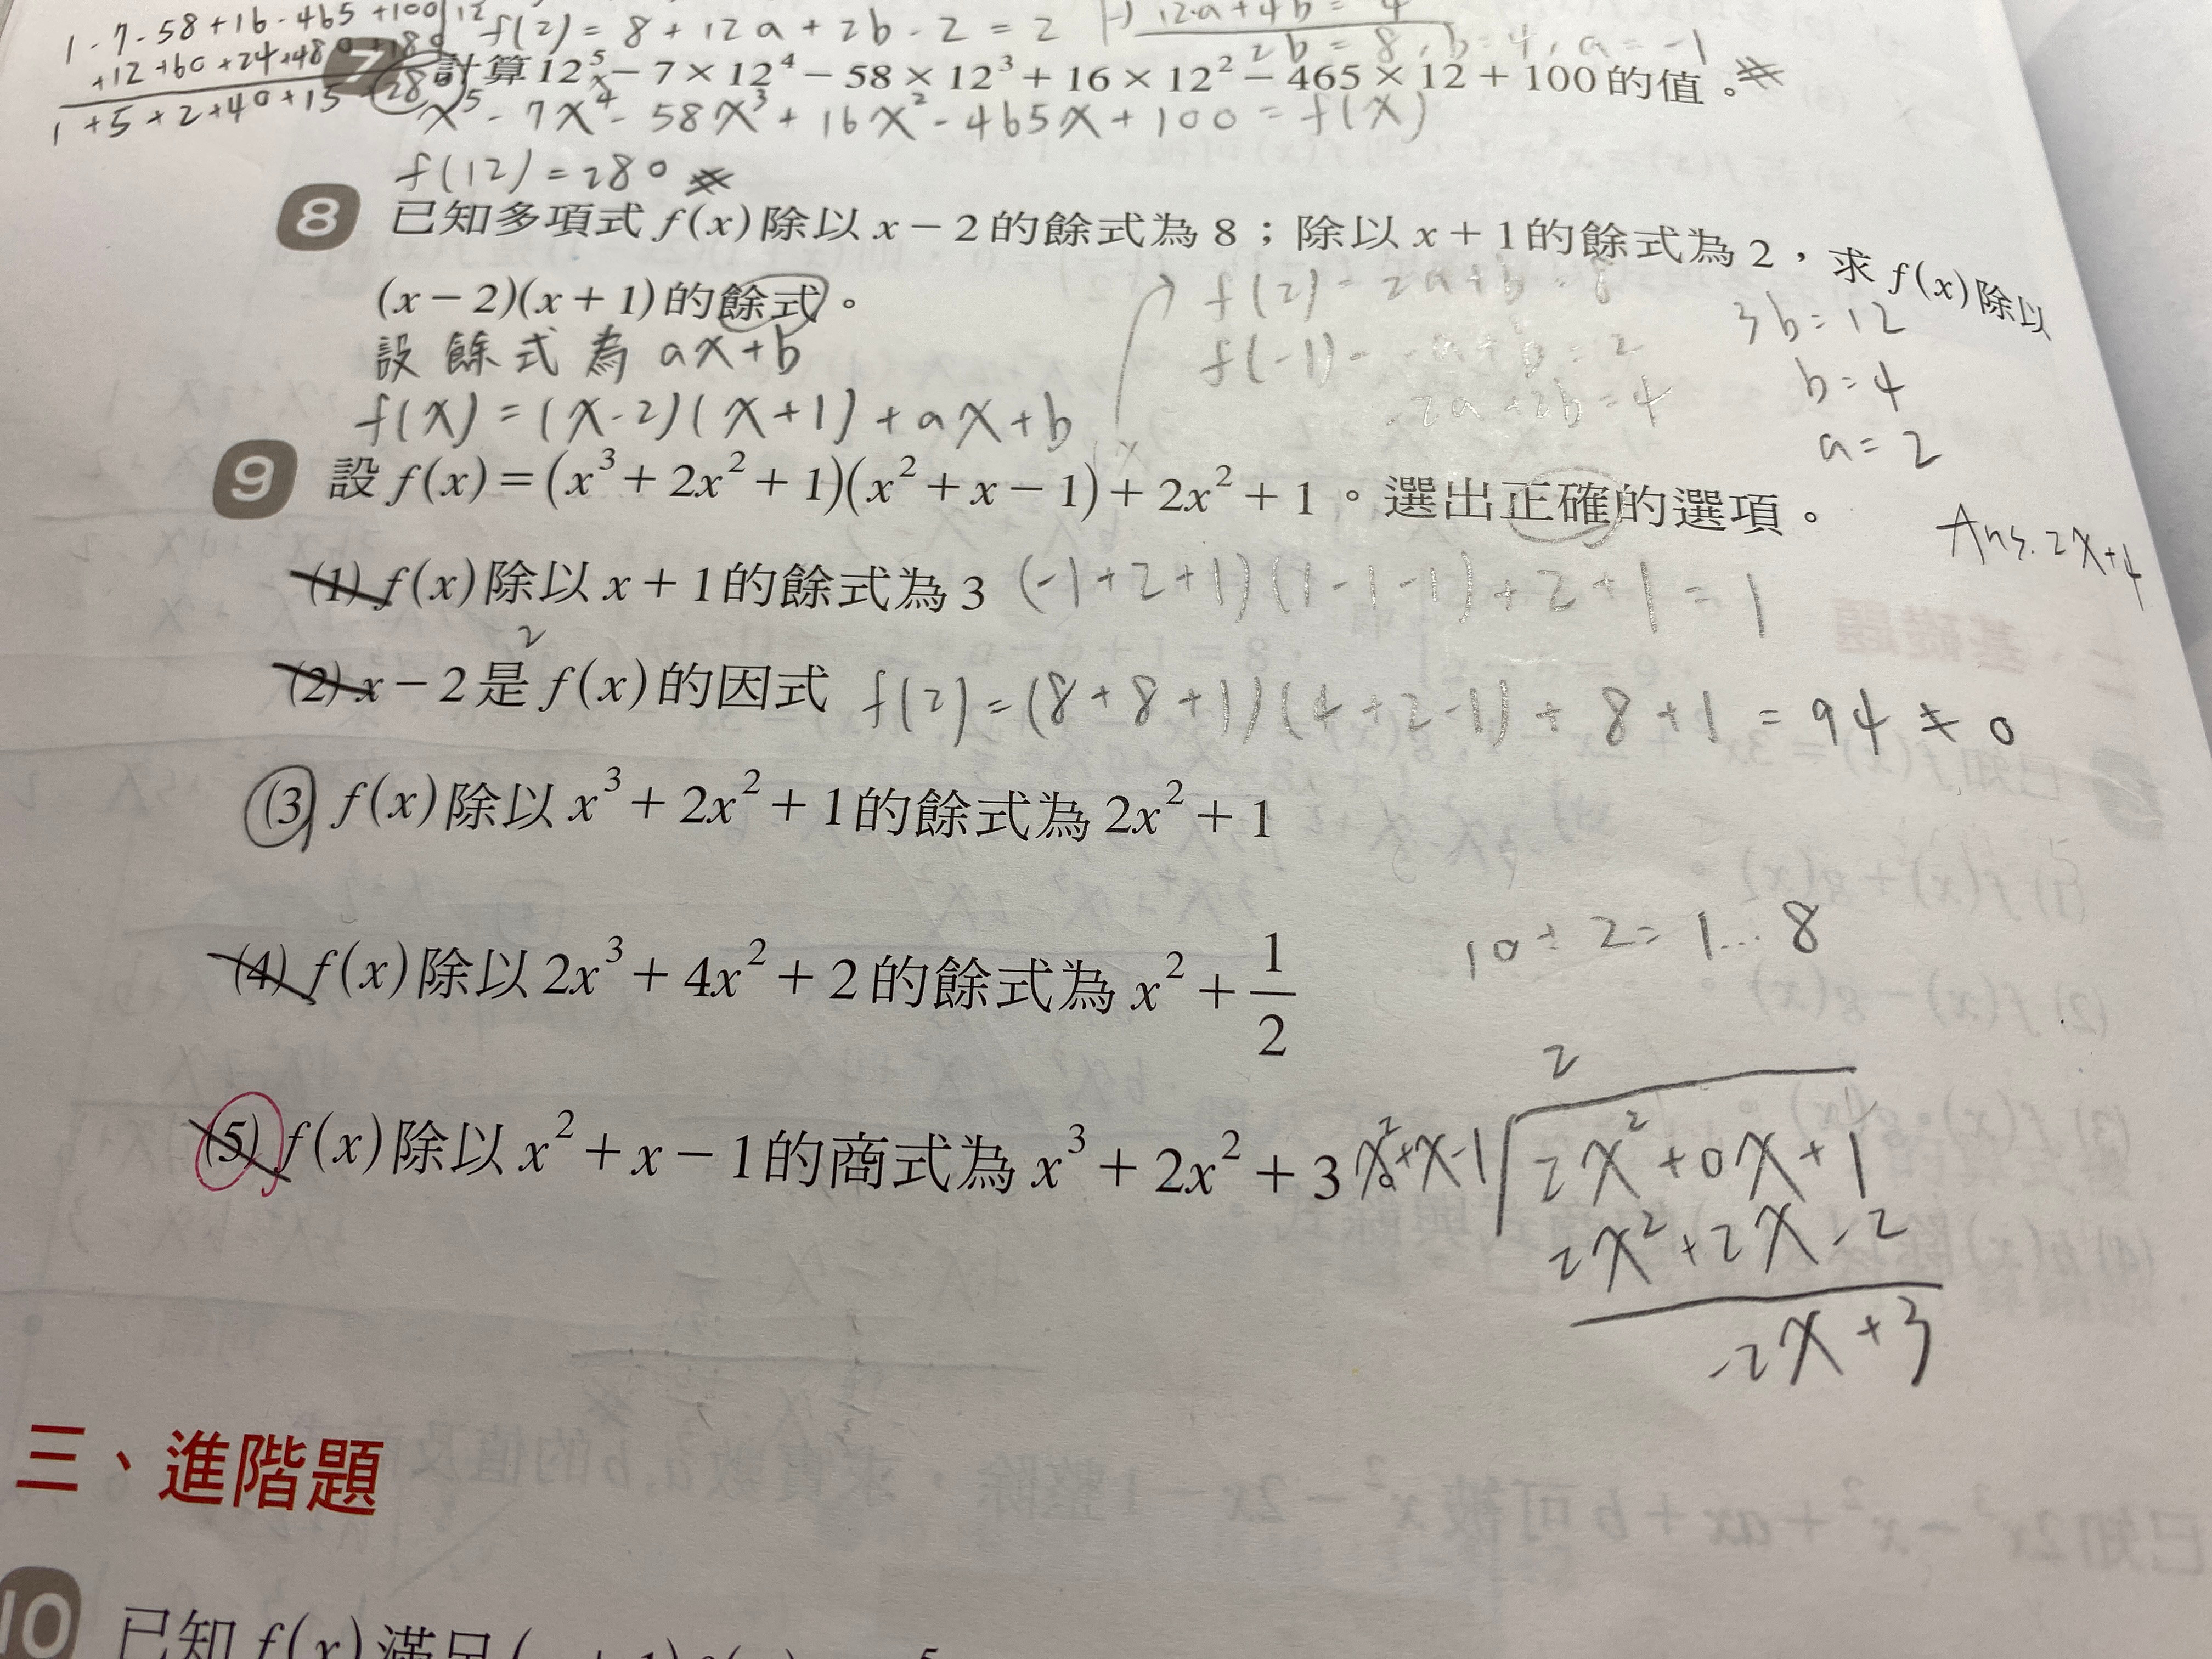 1 - 7 - 58 + 16 - 465 + 100 | 12
+12 +60 +24 +480 +180
1 +5 +2 +40 +15 280
f(2) = 8 + 12a + 2b - 2 = 2
-) 12a + 4b = 4
2b = 8, b = 4, a = -1
7 計算 12⁵ - 7 × 12⁴ - 58 × 12³ + 16 × 12² - 465 × 12 + 100 的值。
x⁵ - 7x⁴ - 58x³ + 16x² - 465x + 100 = f(x)
f(12) = 280
8 已知多項式 f(x) 除以 x - 2 的餘式為 8；除以 x + 1 的餘式為 2，求 f(x) 除以
(x - 2)(x + 1) 的餘式。
設餘式為 ax+b
f(x) = (x-2)(x+1) + ax+b
f(2) = 2a+b = 8
f(-1) = -a+b = 2
-2a+2b=4
3b=12
b=4
a=2
Ans. 2x+4
9 設 f(x) = (x³ + 2x² + 1)(x² + x - 1) + 2x² + 1。選出正確的選項。
(1) f(x) 除以 x + 1 的餘式為 3 (-1+2+1)(1-1-1)+2+1 = 1
2
(2) x - 2 是 f(x) 的因式 f(2) = (8+8+1)(4+2-1)+8+1 = 94 ≠ 0
(3) f(x) 除以 x³ + 2x² + 1 的餘式為 2x² + 1
10 ÷ 2 = 1...8
(4) f(x) 除以 2x³ + 4x² + 2 的餘式為 x² + 1/2
(5) f(x) 除以 x² + x - 1 的商式為 x³ + 2x² + 3
2
x²+x-1 2x²+0x+1
2x²+2x-2
-2x+3
三、進階題
10 已知 f(x) 滿足